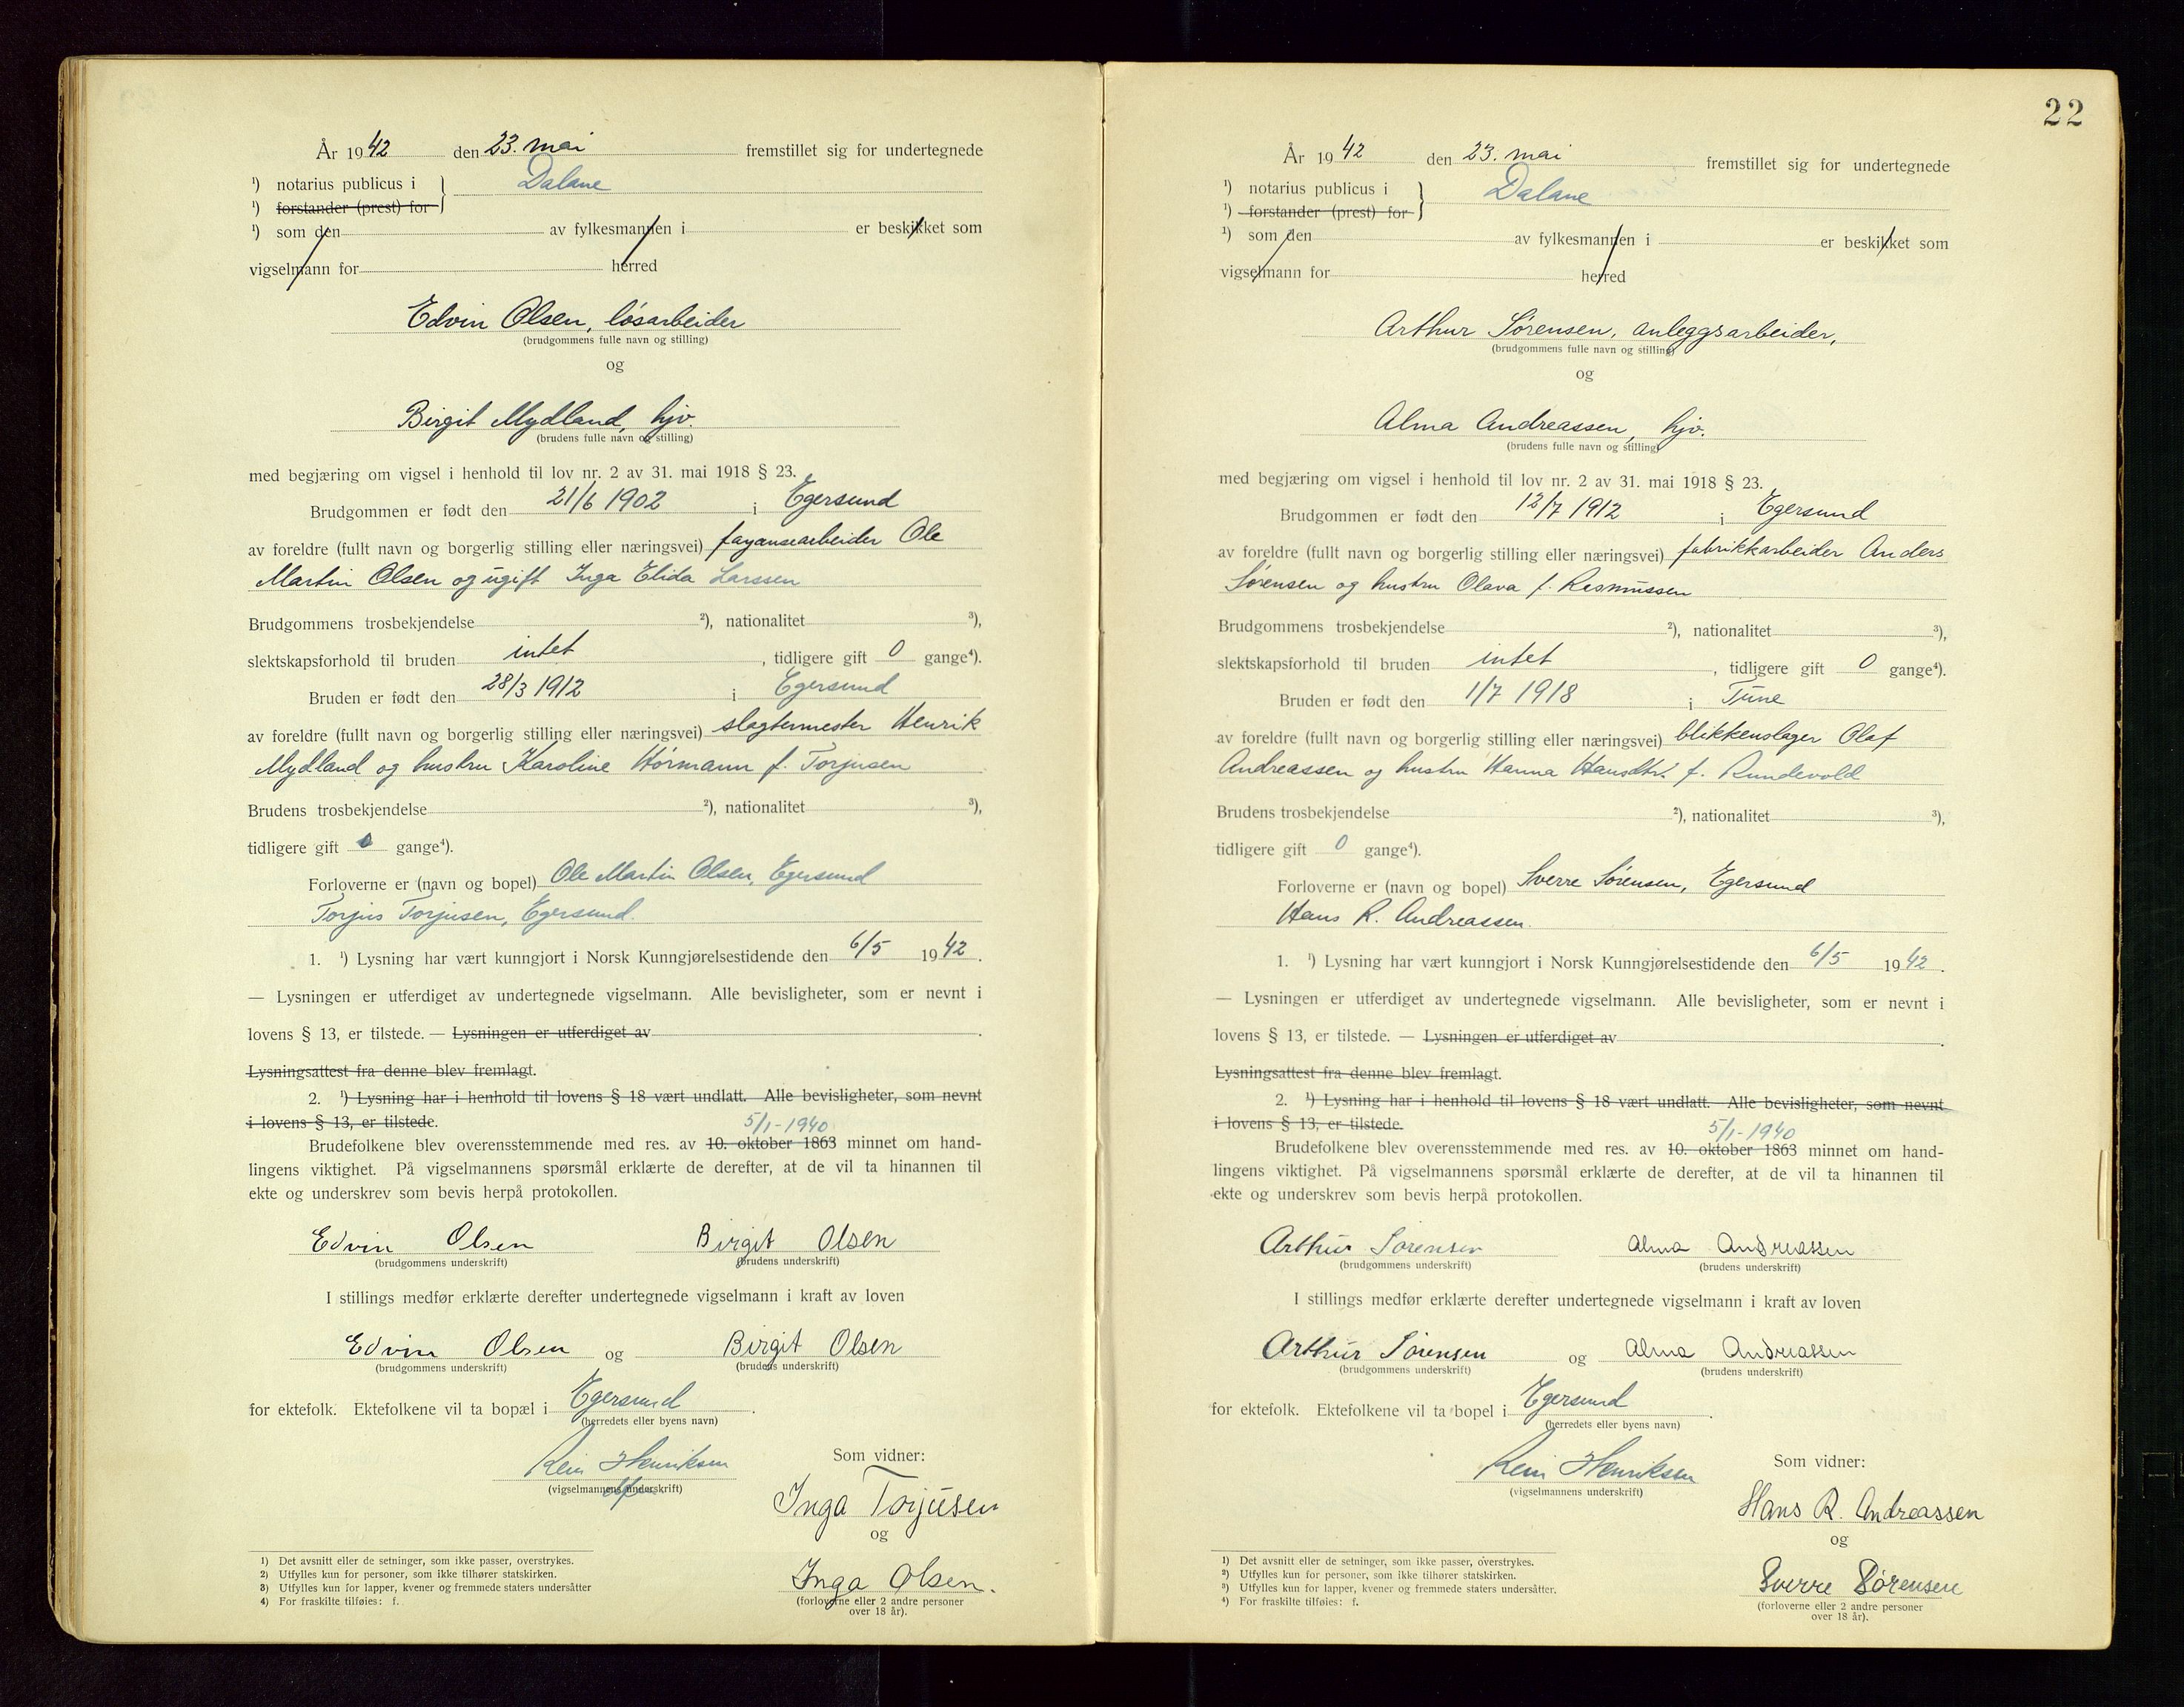 År 1942 den 23. mai fremstillet sig for undertegnede
¹) notarius publicus i } Dalane
¹) forstander (prest) for
¹) som den av fylkesmannen i er beskikket som
vigselmann for herred
Edvin Olsen, løsarbeider
(brudgommens fulle navn og stilling)
og
Birgit Mydland, hjv.
(brudens fulle navn og stilling)
med begjæring om vigsel i henhold til lov nr. 2 av 31. mai 1918 § 23.
Brudgommen er født den 21/6 1902 i Egersund
av foreldre (fullt navn og borgerlig stilling eller næringsvei) fayansearbeider Ole
Martin Olsen og ugift Inga Elida Larssen
Brudgommens trosbekjendelse ²), nationalitet ³),
slektskapsforhold til bruden intet, tidligere gift 0 gange⁴).
Bruden er født den 28/3 1912 i Egersund
av foreldre (fullt navn og borgerlig stilling eller næringsvei) slagtermester Henrik
Mydland og hustru Karoline Hørmann f. Torjusen
Brudens trosbekjendelse ²), nationalitet ³),
tidligere gift 0 gange⁴).
Forloverne er (navn og bopel) Ole Martin Olsen, Egersund
Torjus Torjusen, Egersund.
1. ¹) Lysning har vært kunngjort i Norsk Kunngjørelsestidende den 6/5 1942.
— Lysningen er utferdiget av undertegnede vigselmann. Alle bevisligheter, som er nevnt i
lovens § 13, er tilstede. — Lysningen er utferdiget av .
Lysningsattest fra denne blev fremlagt.
2. ¹) Lysning har i henhold til lovens § 18 vært undlatt. Alle bevisligheter, som nevnt
i lovens § 13, er tilstede.
5/1-1940
Brudefolkene blev overensstemmende med res. av 10. oktober 1863 minnet om hand-
lingens viktighet. På vigselmannens spørsmål erklærte de derefter, at de vil ta hinannen til
ekte og underskrev som bevis herpå protokollen.
Edvin Olsen Birgit Olsen
(brudgommens underskrift) (brudens underskrift)
I stillings medfør erklærte derefter undertegnede vigselmann i kraft av loven
Edvin Olsen og Birgit Olsen
(brudgommens underskrift) (brudens underskrift)
for ektefolk. Ektefolkene vil ta bopæl i Egersund.
(herredets eller byens navn)
Som vidner:
Rein Henriksen
(vigselmannens underskrift)
Inga Torjusen
og
Inga Olsen.
(forloverne eller 2 andre personer
over 18 år).
1) Det avsnitt eller de setninger, som ikke passer, overstrykes.
2) Utfylles kun for personer, som ikke tilhører statskirken.
3) Utfylles kun for lapper, kvener og fremmede staters undersåtter
4) For fraskilte tilføies: f.
22
År 1942 den 23. mai fremstillet sig for undertegnede
¹) notarius publicus i } Dalane
¹) forstander (prest) for
¹) som den av fylkesmannen i er beskikket som
vigselmann for herred
Arthur Sørensen, anleggsarbeider,
(brudgommens fulle navn og stilling)
og
Alma Andreassen, hjv.
(brudens fulle navn og stilling)
med begjæring om vigsel i henhold til lov nr. 2 av 31. mai 1918 § 23.
Brudgommen er født den 12/7 1912 i Egersund
av foreldre (fullt navn og borgerlig stilling eller næringsvei) fabrikkarbeider Anders
Sørensen og hustru Olava f. Rasmussen
Brudgommens trosbekjendelse ²), nationalitet ³),
slektskapsforhold til bruden intet, tidligere gift 0 gange⁴).
Bruden er født den 1/7 1918 i Tune
av foreldre (fullt navn og borgerlig stilling eller næringsvei) blikkenslager Olaf
Andreassen og hustru Hanna Hansdtr. f. Rundevold
Brudens trosbekjendelse ²), nationalitet ³),
tidligere gift 0 gange⁴).
Forloverne er (navn og bopel) Sverre Sørensen, Egersund
Hans R. Andreassen.
1. ¹) Lysning har vært kunngjort i Norsk Kunngjørelsestidende den 6/5 1942.
— Lysningen er utferdiget av undertegnede vigselmann. Alle bevisligheter, som er nevnt i
lovens § 13, er tilstede. — Lysningen er utferdiget av .
Lysningsattest fra denne blev fremlagt.
2. ¹) Lysning har i henhold til lovens § 18 vært undlatt. Alle bevisligheter, som nevnt
i lovens § 13, er tilstede.
5/1-1940
Brudefolkene blev overensstemmende med res. av 10. oktober 1863 minnet om hand-
lingens viktighet. På vigselmannens spørsmål erklærte de derefter, at de vil ta hinannen til
ekte og underskrev som bevis herpå protokollen.
Arthur Sørensen Alma Andreassen
(brudgommens underskrift) (brudens underskrift)
I stillings medfør erklærte derefter undertegnede vigselmann i kraft av loven
Arthur Sørensen og Alma Andreassen
(brudgommens underskrift) (brudens underskrift)
for ektefolk. Ektefolkene vil ta bopel i Egersund.
(herredets eller byens navn)
Som vidner:
Rein Henriksen
(vigselmannens underskrift)
Hans R. Andreassen
og
Sverre Sørensen
(forloverne eller 2 andre personer
over 18 år).
1) Det avsnitt eller de setninger, som ikke passer, overstrykes.
2) Utfylles kun for personer, som ikke tilhører statskirken.
3) Utfylles kun for lapper, kvener og fremmede staters undersåtter.
4) For fraskilte tilføies: f.